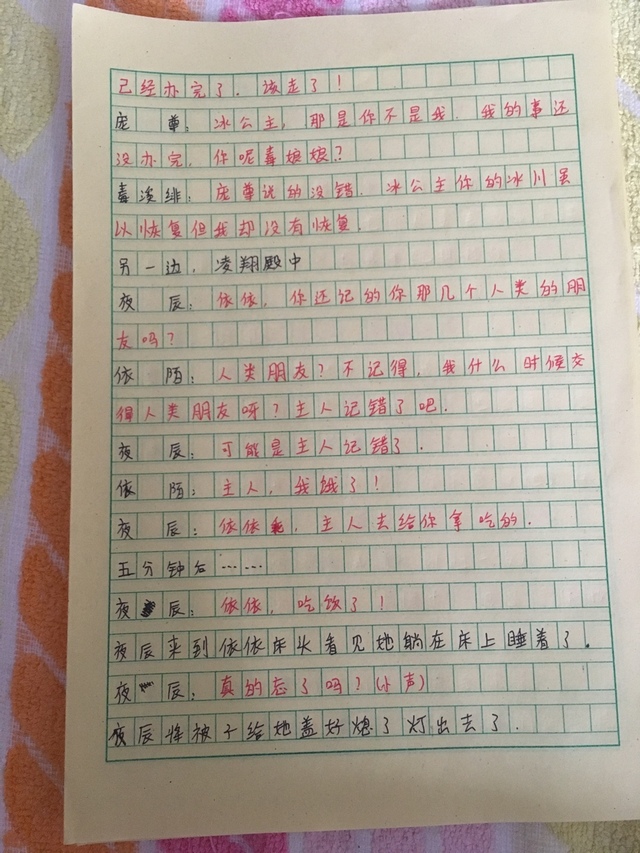 已经办完了.该走了!
庞 尊:冰公主,那是你不是我.我的事还
没办完,你呢毒娘娘?
毒浅绯:庞尊说的没错.冰公主你的冰川虽
以恢复但我却没有恢复.
另一边,凌翔殿中
夜 辰:依依,你还记的你那几个人类的朋
友吗?
依 陌:人类朋友?不记得,我什么时候交
得人类朋友呀?主人记错了吧.
夜 辰:可能是主人记错了.
依 陌:主人,我饿了!
夜 辰:依依乖,主人去给你拿吃的.
五分钟后……
夜 辰:依依,吃饭了!
夜辰来到依依床头看见她躺在床上睡着了.
夜 辰:真的忘了吗?(小声)
夜辰将被子给她盖好熄了灯出去了.